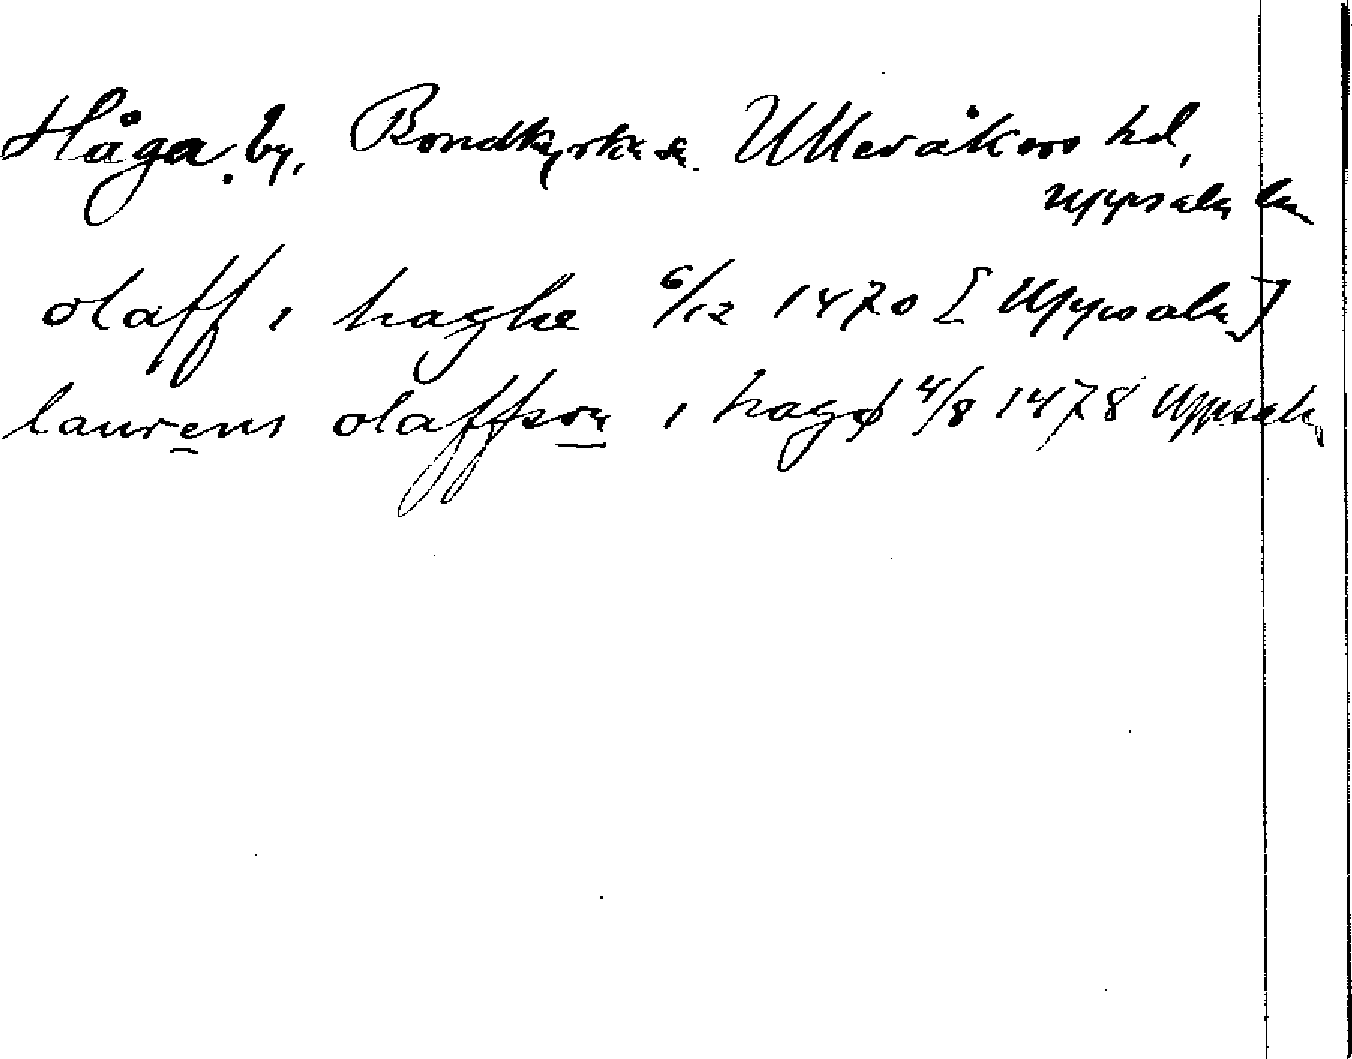 Håga. by, Bondkyrka sn. Ulleråkers hd,
Uppsala län
olaff i haghe 6/12 1470 [Uppsala]
laurens olaffson i hagø 4/8 1478 Uppsala